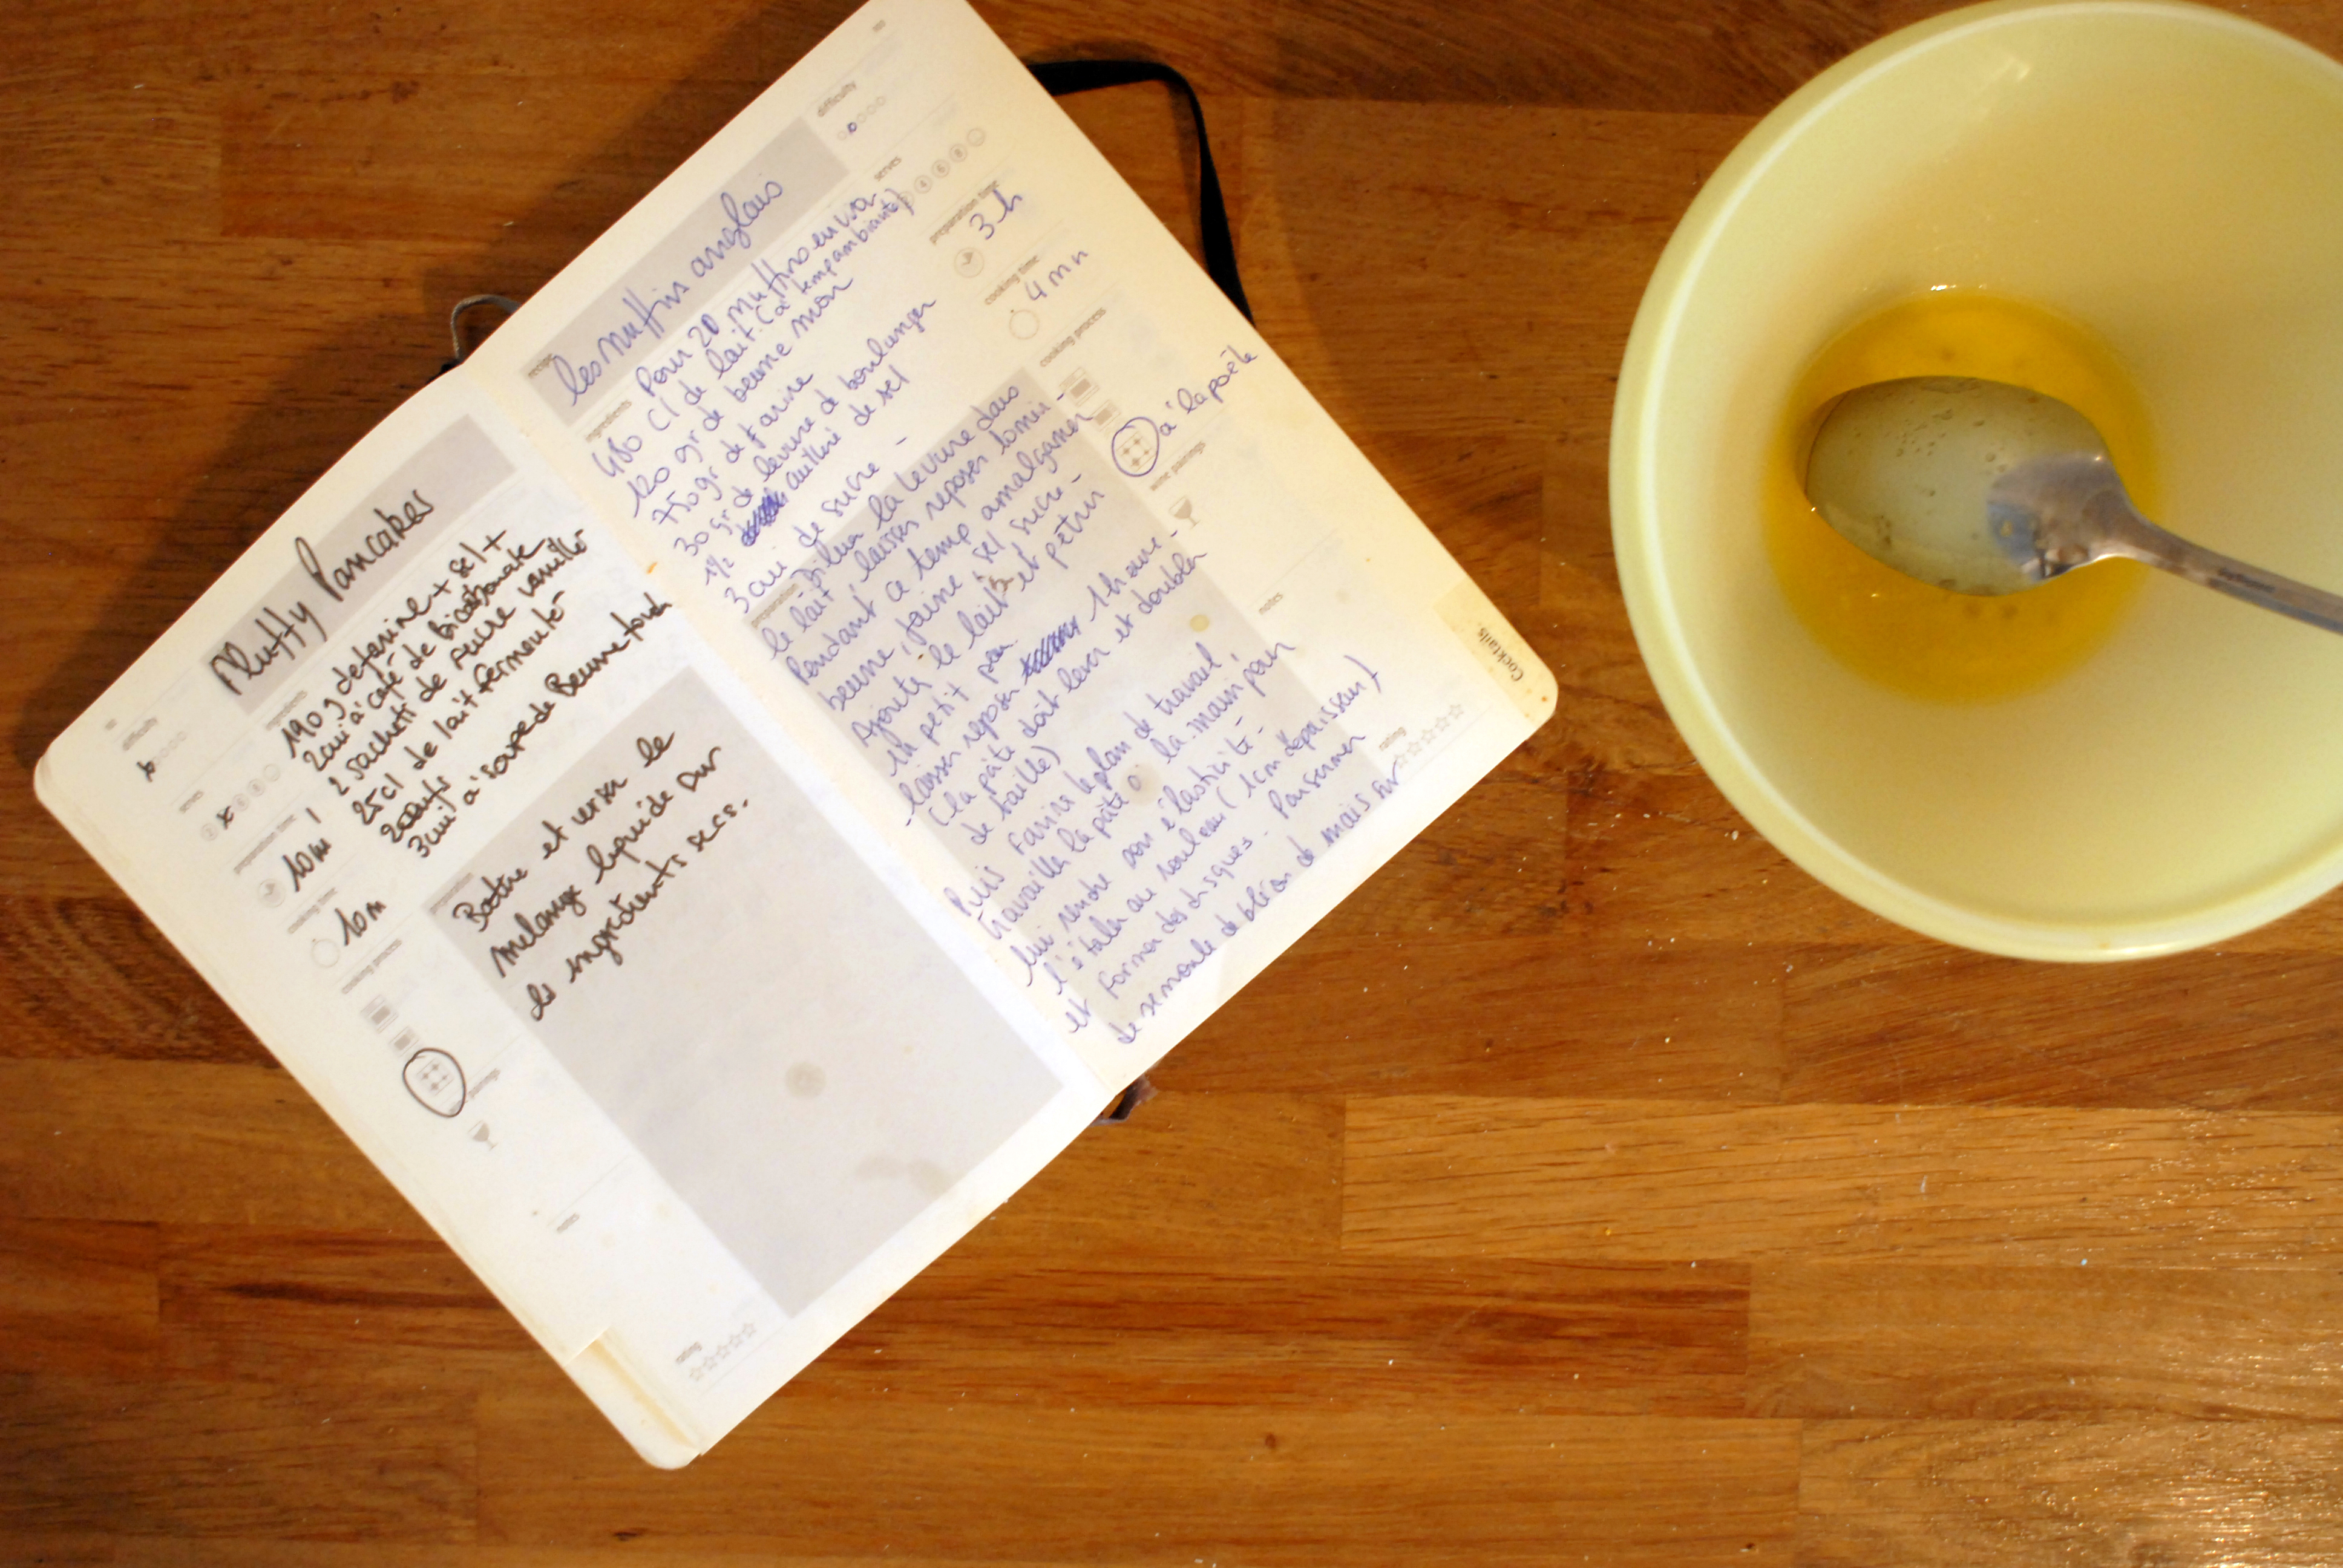 difficulty
serves
preparation time
10 m
cooking time
10 m
cooking process
notes
rating
Fluffy Pancakes
ingredients
190 g de farine + sel +
2 cui à café de bicarbonate
2 sachets de sucre vanillé
25 cl de lait fermenté
2 oeufs
3 cuil à soupe de Beurre fondu
preparation
Battre et verser le
mélange liquide sur
les ingrédients secs.
recipe
les Muffins anglais
ingredients
Pour 20 muffins environ
480 Cl de lait (à temp ambiante)
120 gr de beurre mou
750 gr de farine
30 gr de levure de boulanger
1/2 cuillère de sel
3 cui de sucre -
preparation
Diluer la levure dans
le lait, laisser reposer 10 min -
Pendant ce temp amalgamer
beurre, farine, sel, sucre -
Ajouter le lait et pétrir
un petit peu
laisser reposer 1 heure -
(la pâte doit lever et doubler
de taille)
Puis fariner le plan de travail,
travailler la pâte à la main pour
lui rendre son élasticité -
l'étaler au rouleau (1 cm d'épaisseur)
et former des disques - Parsemer
de semoule de blé ou de maïs sur
difficulty
serves
4 6 8
preparation time
3 h
cooking time
4 mn
cooking process
à la poêle
wine pairings
notes
rating
Cocktails